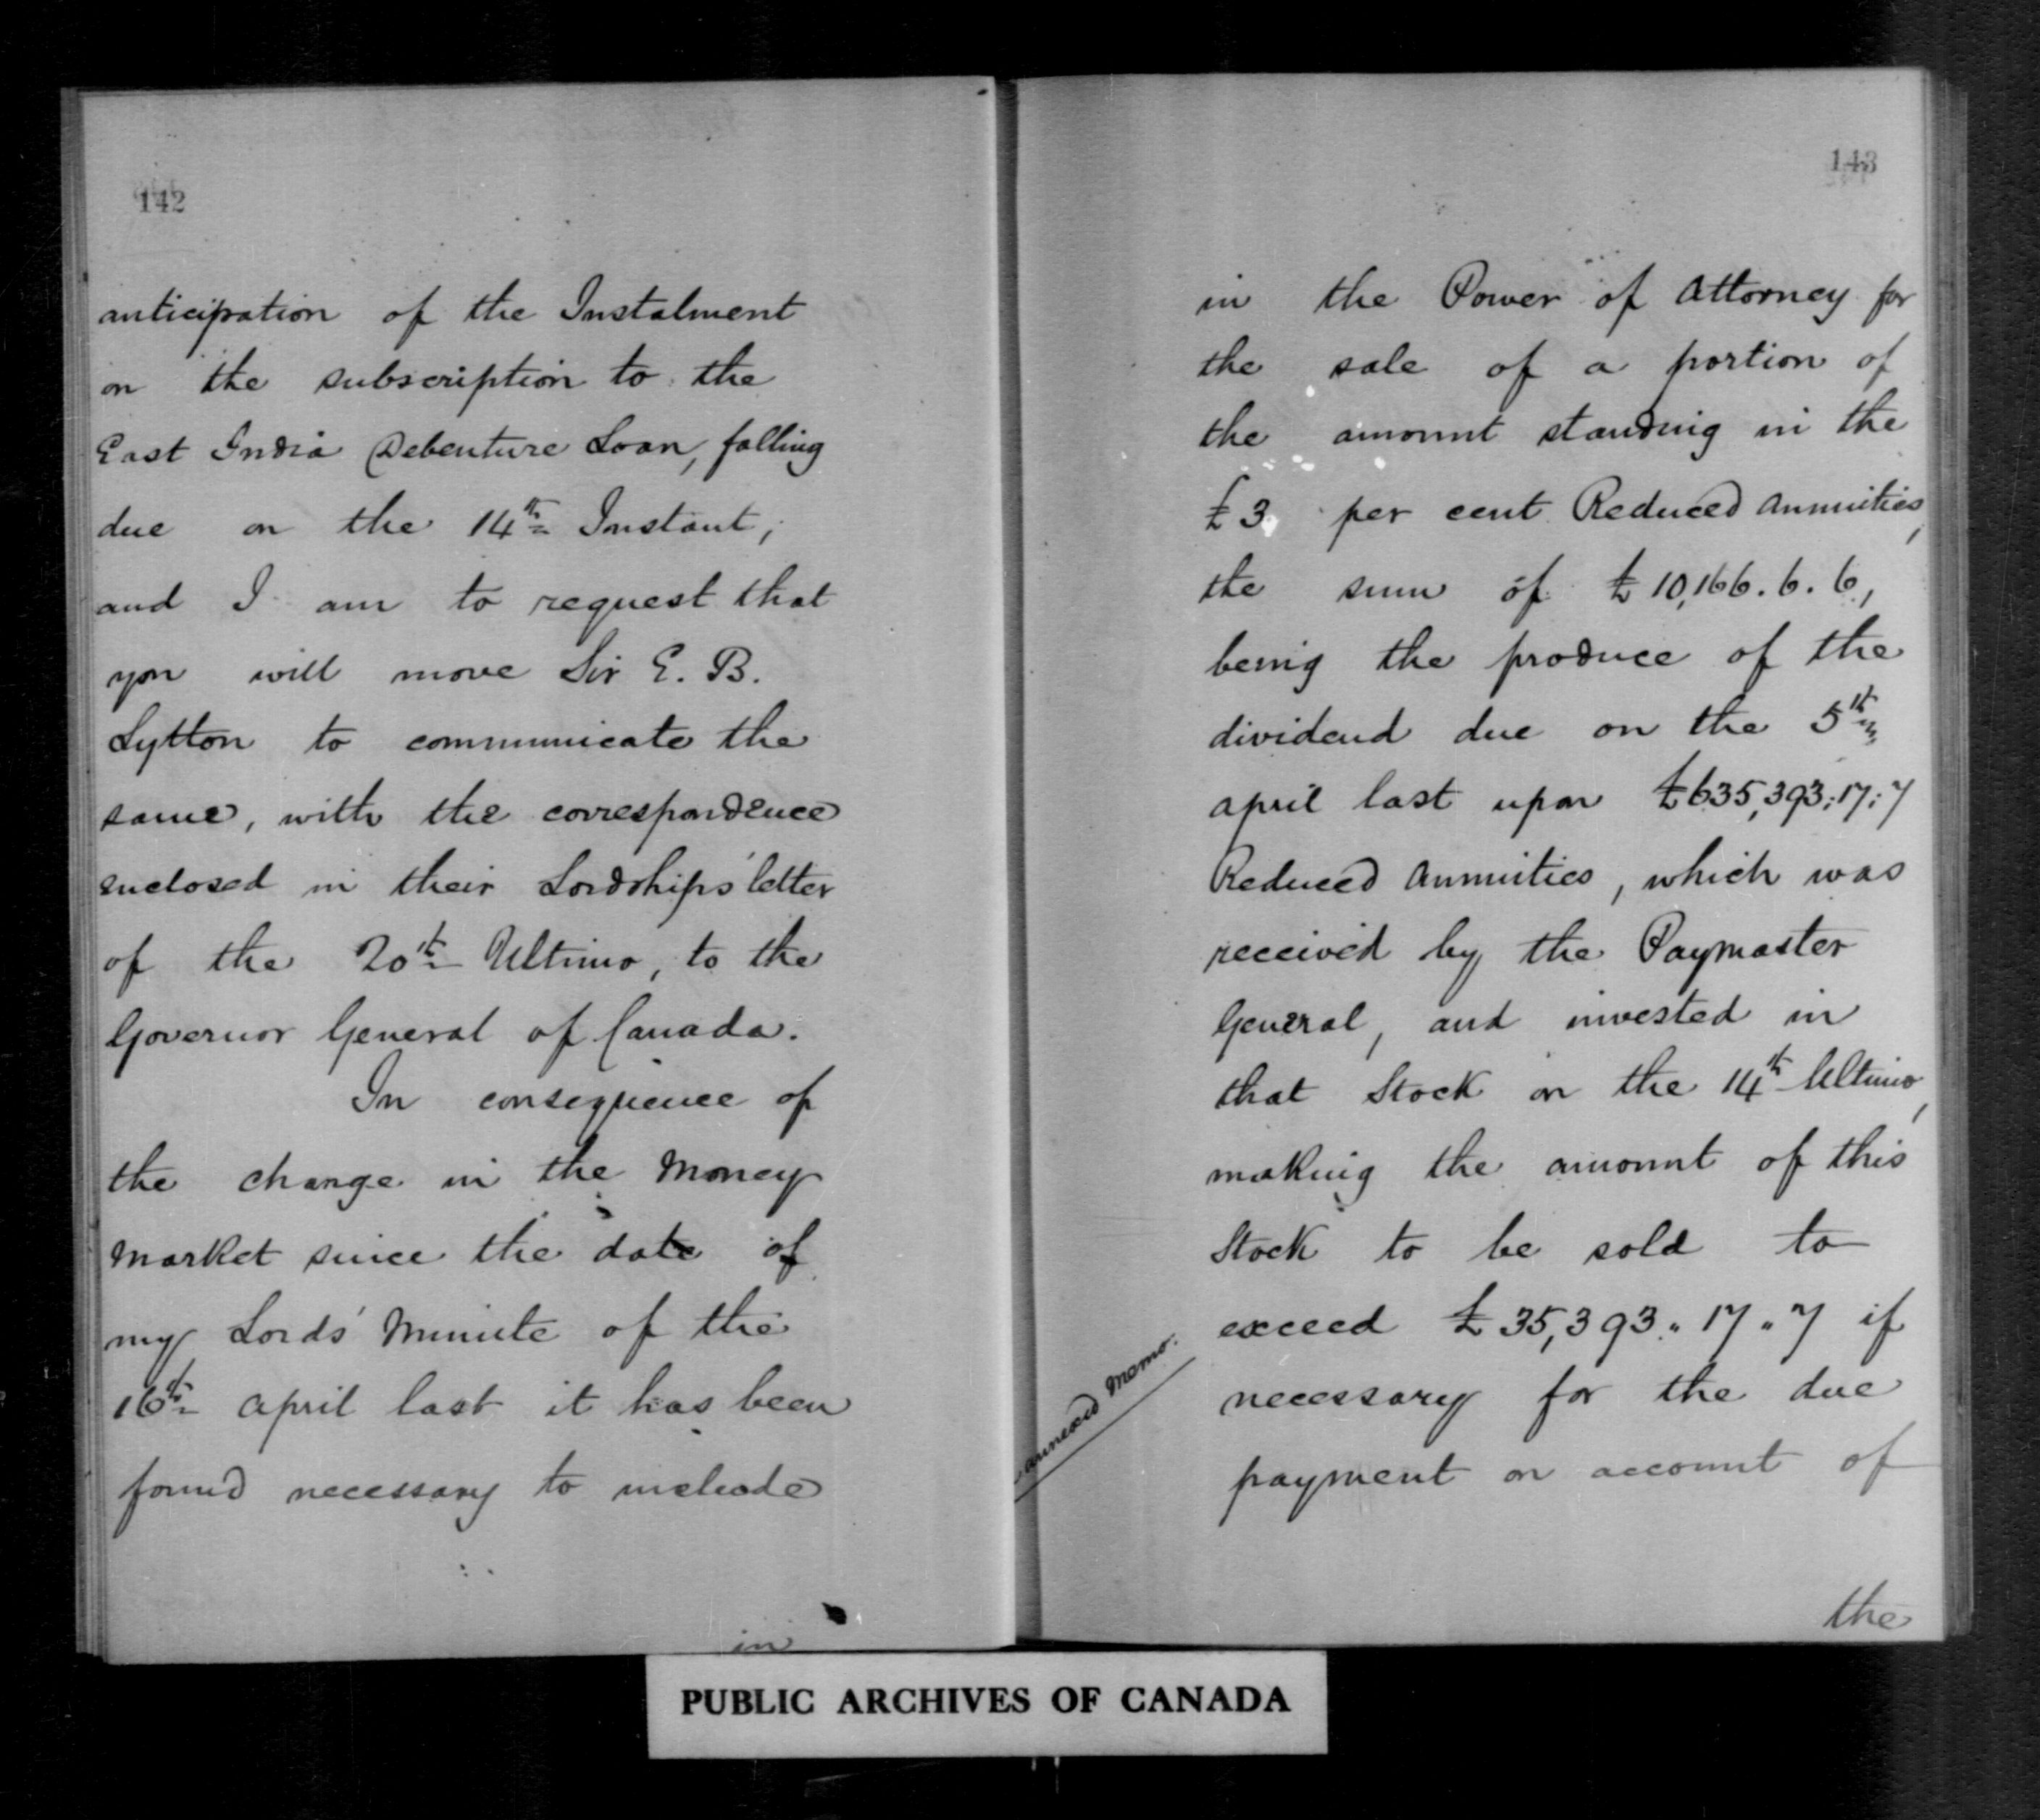 142
anticipation of the Instalment
on the subscription to the
East India Debenture Loan, falling
due on the 14th Instant,
and I am to request that
you will move Sir E. B.
Lytton to communicate the
same, with the correspondence
enclosed in their Lordships' letter
of the 20th Ultimo, to the
Governor General of Canada.
In consequence of
the change in the Money
Market since the date of
my Lords' Minute of the
16th April last it has been
found necessary to include
in
143
in the Power of Attorney for
the sale of a portion of
the amount standing in the
£3 per cent Reduced Annuities,
the sum of £10,166.6.6,
being the produce of the
dividend due on the 5th
April last upon £635,393:17:7
Reduced Annuities, which was
received by the Paymaster
General, and invested in
that Stock on the 14th Ultimo,
making the amount of this
Stock to be sold to
exceed £35,393.17.7 if
necessary for the due
payment on account of
annexed Memo.
the
PUBLIC ARCHIVES OF CANADA